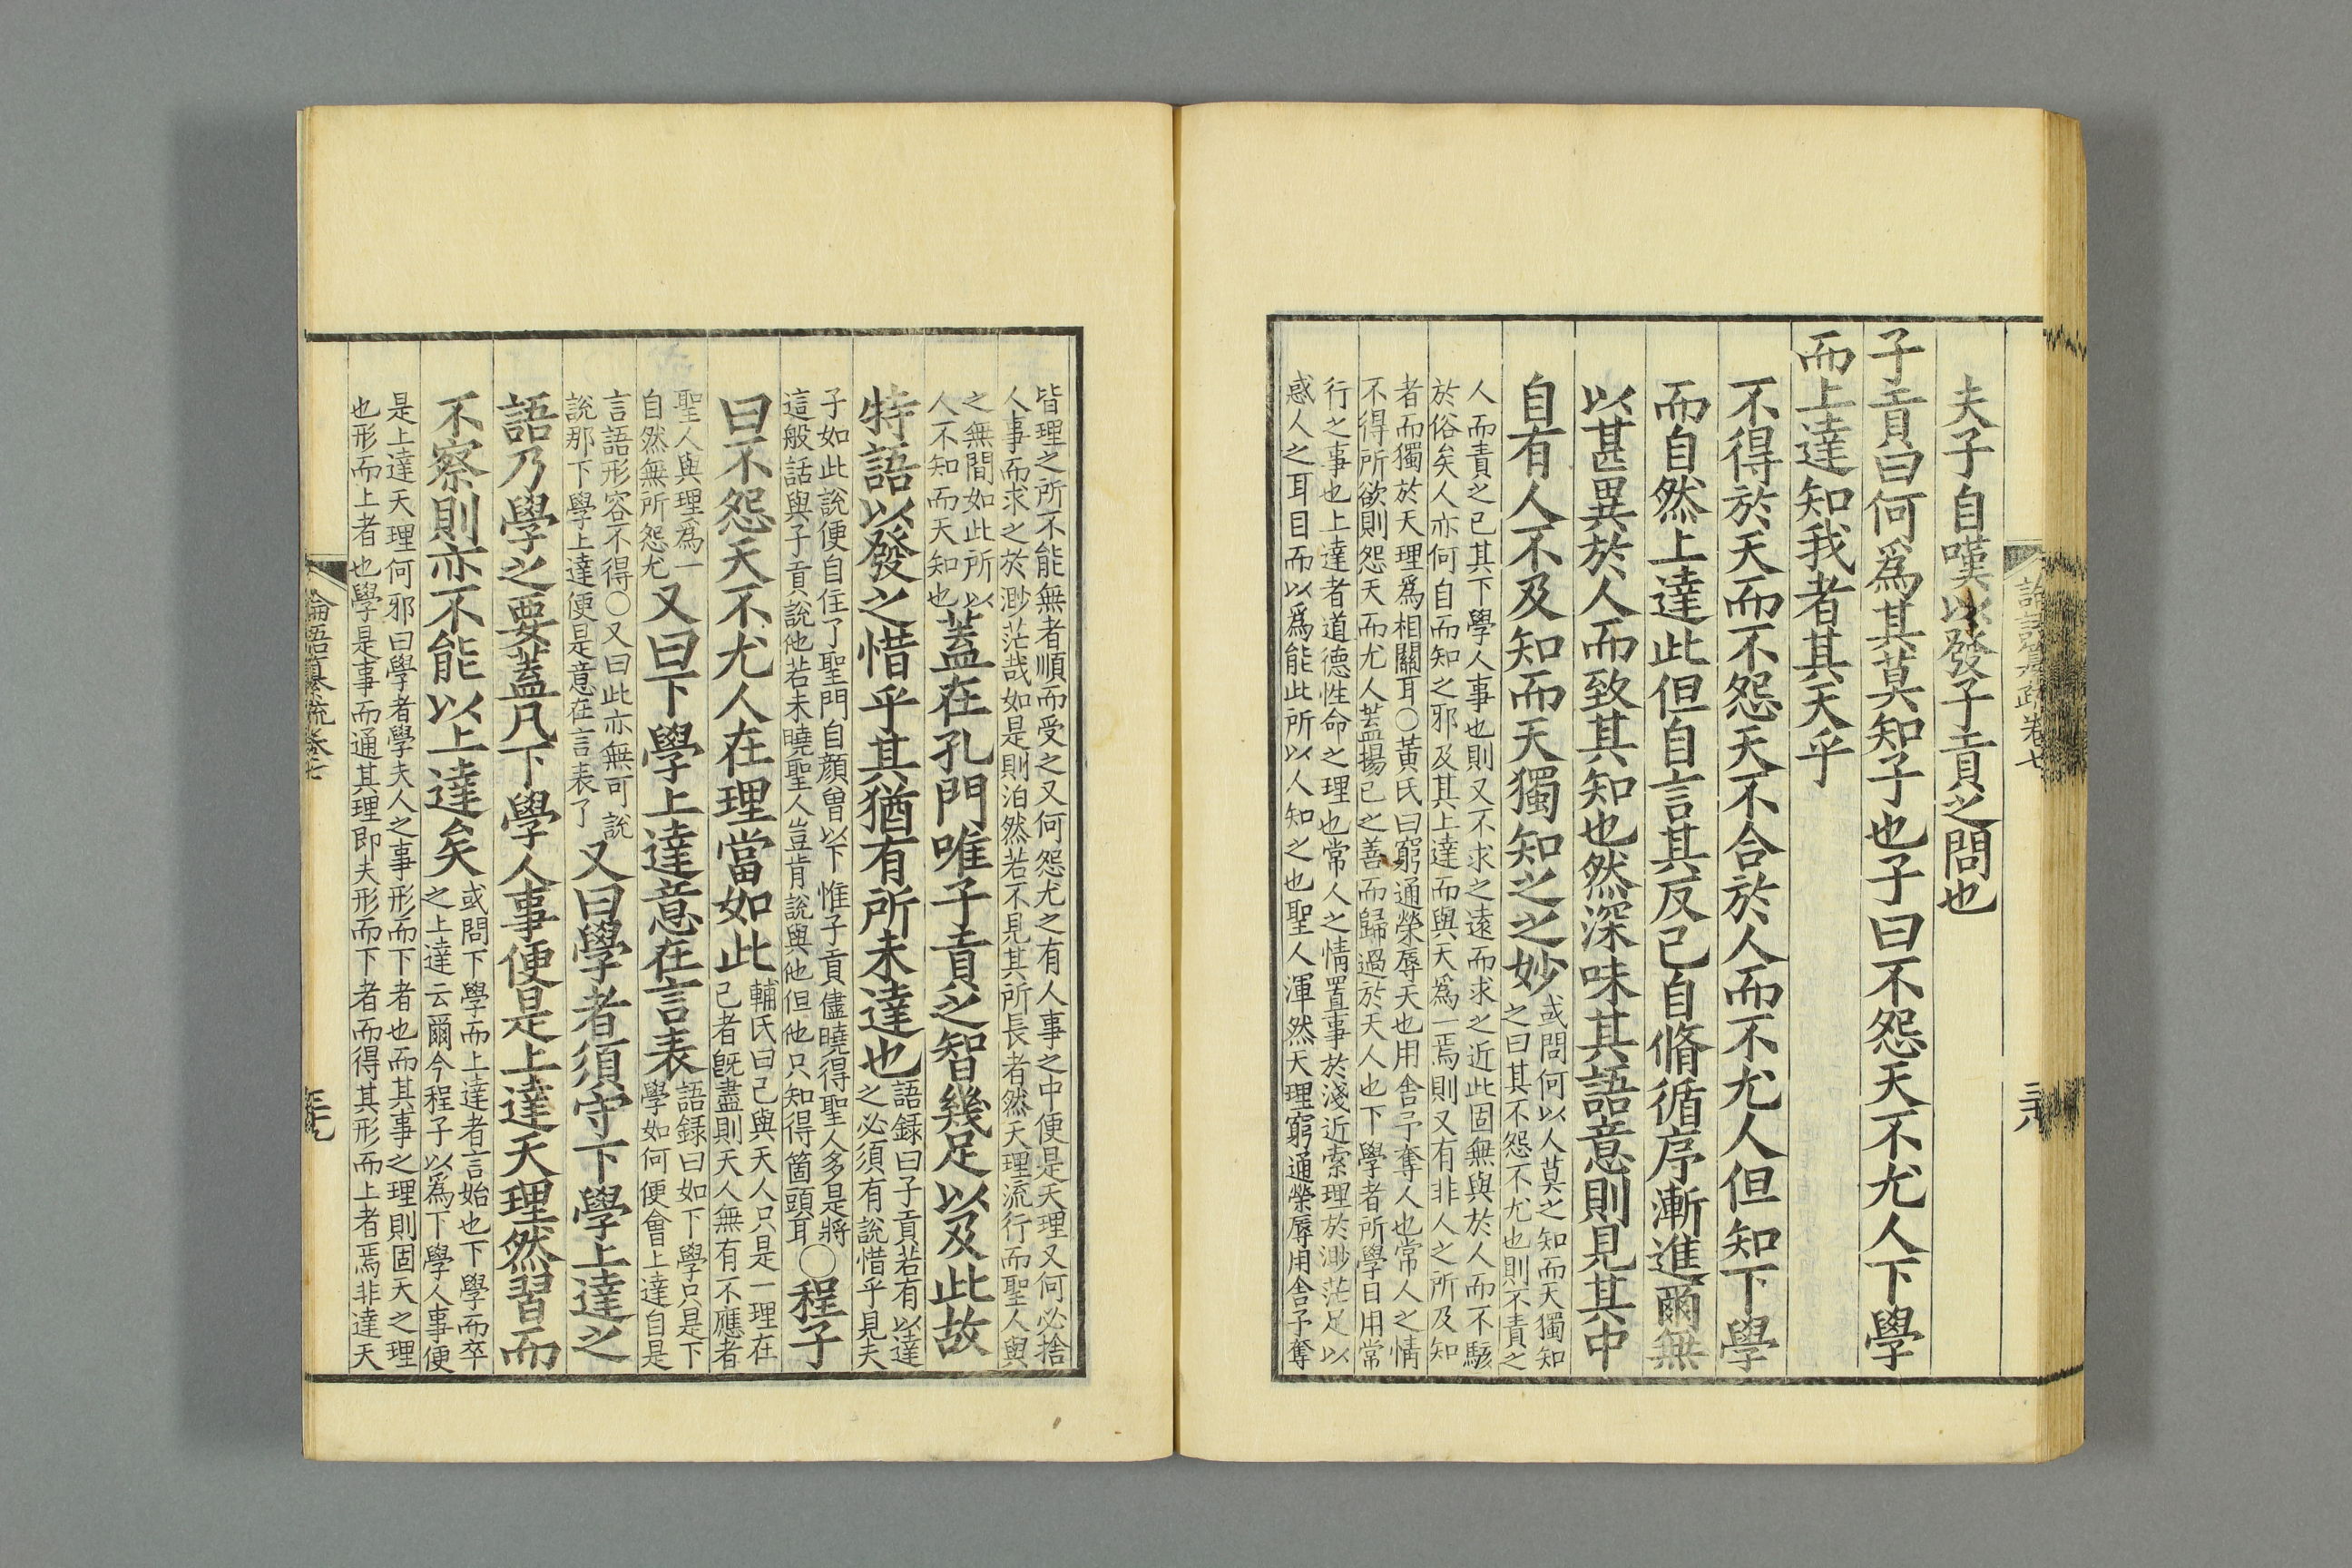 夫子自嘆以發子貢之問也
子貢曰何爲其莫知子也子曰不怨天不尤人下學
而上達知我者其天乎
不得於天而不怨天不合於人而不尤人但知下學
而自然上達此但自言其反己自脩循序漸進爾無
以甚異於人而致其知也然深味其語意則見其中
自有人不及知而天獨知之之妙
或問何以人莫之知而天獨知
之曰其不怨不尤也則不責之
人而責之已其下學人事也則又不求之遠而求之近此固無與於人而不駭
於俗矣人亦何自而知之邪及其上達而與天爲一焉則又有非人之所及知
者而獨於天理爲相關耳○黃氏曰窮通榮辱天也用舍予奪人也常人之情
不得所欲則怨天而尤人蓋揚已之善而歸過於天人也下學者所學日用常
行之事也上達者道德性命之理也常人之情置事於淺近索理於渺茫足以
惑人之耳目而以爲能此所以人知之也聖人渾然天理窮通榮辱用舍予奪
卷七
皆理之所不能無者順而受之又何怨尤之有人事之中便是天理又何必捨
人事而求之於渺茫哉如是則泊然若不見其所長者然天理流行而聖人與
之無間如此所以
人不知而天知也
蓋在孔門唯子貢之智幾足以及此故
特語以發之惜乎其猶有所未達也
語録曰子貢若有以達
之必須有說惜乎見夫
子如此說便自住了聖門自顏曾以下惟子貢儘曉得聖人多是將
這般話與子貢說他若未曉聖人豈肯說與他但他只知得箇頭耳
○程子
曰不怨天不尤人在理當如此
輔氏曰己與天人只是一理在
己者旣盡則天人無有不應者
聖人與理爲一
自然無所怨尤
又曰下學上達意在言表
語録曰如下學只是下
學如何便會上達自是
言語形容不得○又曰此亦無可說
說那下學上達便是意在言表了
又曰學者須守下學上達之
語乃學之要蓋凡下學人事便是上達天理然習而
不察則亦不能以上達矣
或問下學而上達者言始也下學而卒
之上達云爾今程子以爲下學人事便
是上達天理何邪曰學者學夫人之事形而下者也而其事之理則固天之理
也形而上者也學是事而通其理即夫形而下者而得其形而上者焉非達天
論語纂疏卷七